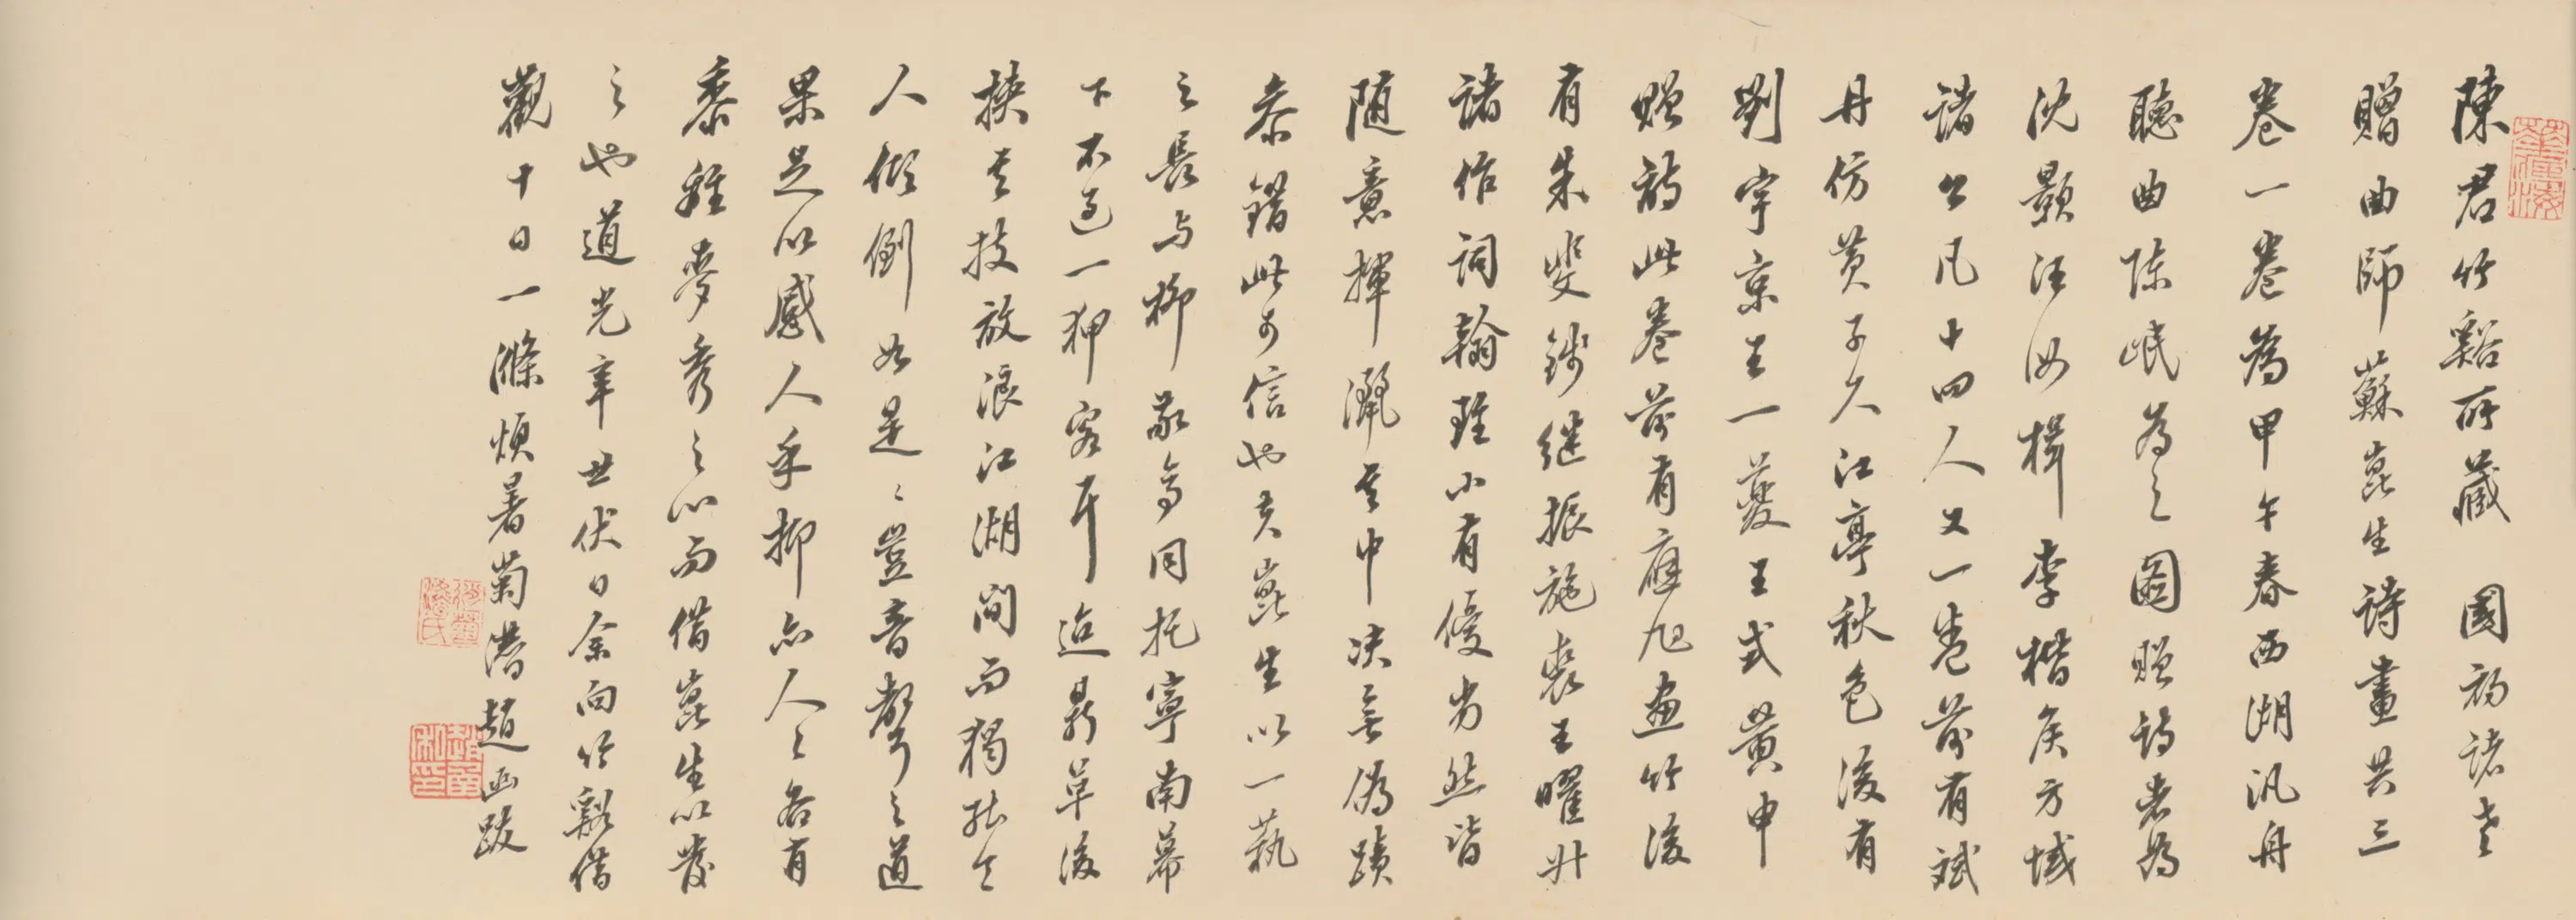 陳君竹谿所藏 國初諸老
贈曲師 蘇崑生詩畫共三
卷一卷為甲午春西湖汎舟
聽曲陳岷為之圖贈詩者為
沈顥汪汝楫李楷侯方域
諸公凡十四人又一卷前有斌
丹仿黃子久江亭秋色後有
劉宇京王一蘷王式黃申
贈詩此卷前有應旭畫竹後
有朱斐錢繼振施裘王曜升
諸作詞翰雖小有優劣然皆
随意揮灑其中决無偽蹟
叅錯此可信也夫崑生以一藝
之長与柳敬亭同托寧南幕
下不過一狎客耳迨鼎革後
挾其技放浪江湖間而獨能令
人傾倒如是〻豈音聲之道
果足以感人乎抑亦人〻各有
黍離麥秀之心而借崑生以發
之也道光辛丑伏日余向竹谿借
觀十日一滌煩暑菊潛趙函跋